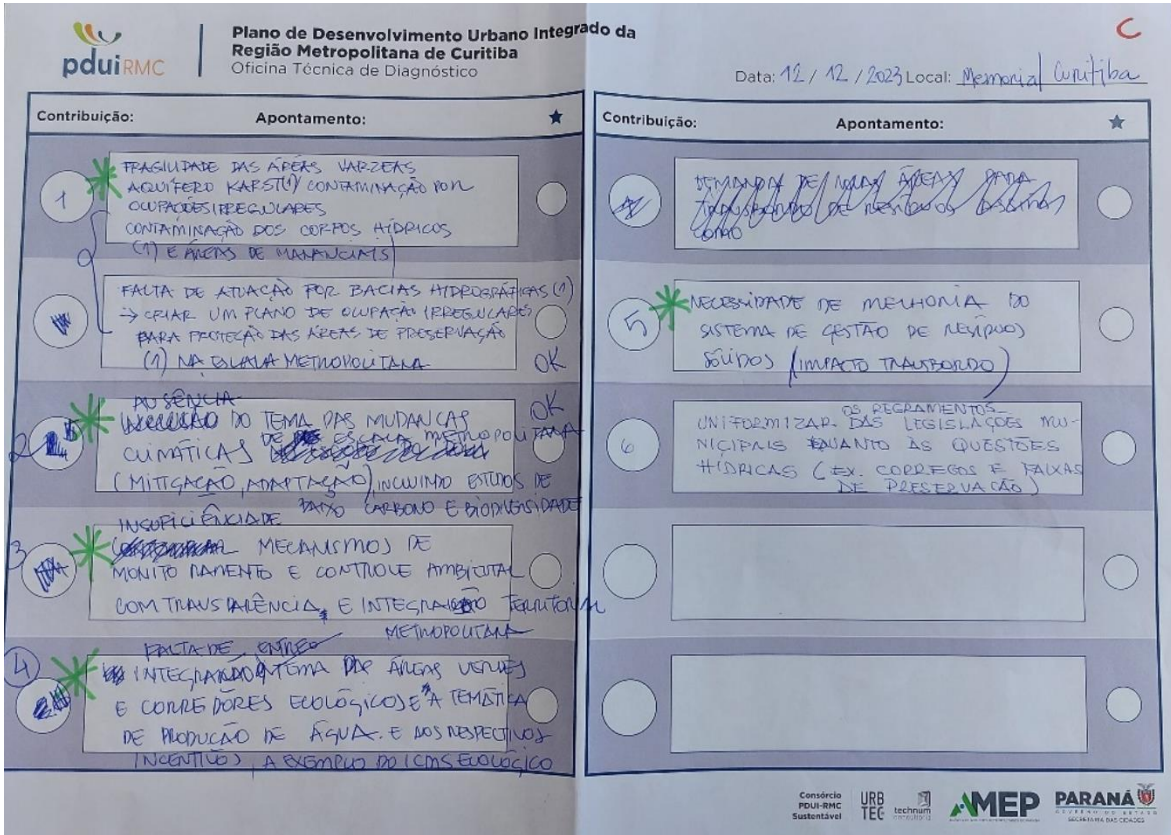 pdui RMC
Plano de Desenvolvimento Urbano Integrado da
Região Metropolitana de Curitiba
Oficina Técnica de Diagnóstico
C
Data: 12 / 12 / 2023 Local: Memorial Curitiba
Contribuição: Apontamento:
1
FRAGILIDADE DAS ÁREAS VARZEAS
AQUÍFERO KARST(1) CONTAMINAÇÃO POR
OCUPAÇÕES IRREGULARES
CONTAMINAÇÃO DOS CORPOS HÍDRICOS
(1) E ÁREAS DE MANANCIAIS
FALTA DE ATUAÇÃO POR BACIAS HIDROGRÁFICAS (1)
→ CRIAR UM PLANO DE OCUPAÇÃO IRREGULARES
PARA PROTEÇÃO DAS ÁREAS DE PRESERVAÇÃO
(1) NA ESCALA METROPOLITANA
OK
OK
2
AUSÊNCIA
DO TEMA DAS MUDANÇAS
CLIMÁTICAS DE ESCALA METROPOLITANA
(MITIGAÇÃO, ADAPTAÇÃO), INCLUINDO ESTUDOS DE
BAIXO CARBONO E BIODIVERSIDADE
3
INSUFICIÊNCIA DE
MECANISMOS DE
MONITORAMENTO E CONTROLE AMBIENTAL
COM TRANSPARÊNCIA, E INTEGRAÇÃO TERRITORIAL
METROPOLITANA
4
FALTA DE ENTRE O
INTEGRANDO TEMA DAS ÁREAS VERDES
E CORREDORES ECOLÓGICOS E A TEMÁTICA
DE PRODUÇÃO DE ÁGUA. E AOS RESPECTIVOS
INCENTIVOS, A EXEMPLO DO ICMS ECOLÓGICO
Contribuição: Apontamento:
DEMANDA DE NOVAS ÁREAS PARA
TRANSBORDO DE RESÍDUOS
COMO
5
NECESSIDADE DE MELHORIA DO
SISTEMA DE GESTÃO DE RESÍDUOS
SÓLIDOS (IMPACTO TRANSBORDO)
6
OS REGRAMENTOS
UNIFORMIZAR DAS LEGISLAÇÕES MU-
NICIPAIS QUANTO ÀS QUESTÕES
HÍDRICAS (EX. CORREGOS E FAIXAS
DE PRESERVAÇÃO)
Consórcio
PDUI-RMC
Sustentável
URB
TEC
technum
consultoria
AMEP
PARANÁ
GOVERNO DO ESTADO
SECRETARIA DAS CIDADES